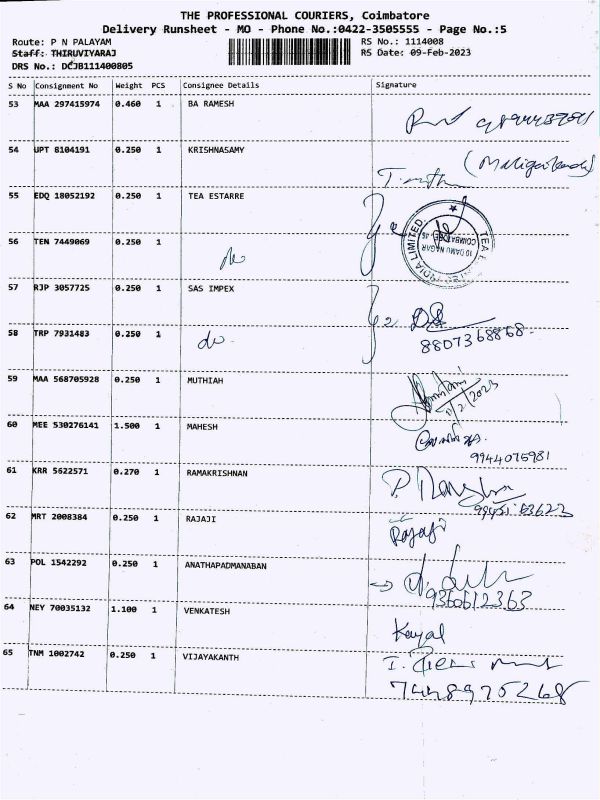 THE PROFESSIONAL COURIERS, Coimbatore
Delivery Runsheet - MO - Phone No.:0422-3505555 - Page No.:5
Route: P N PALAYAM
RS No.: 1114008
Staff: THIRUVIYARAJ
RS Date: 09-Feb-2023
DRS No.: DCJB111400805
S No Consignment No Weight PCS Consignee Details Signature
53 MAA 297415974 0.460 1 BA RAMESH
54 UPT 8104191 0.250 1 KRISHNASAMY
55 EDQ 18052192 0.250 1 TEA ESTARRE
56 TEN 7449069 0.250 1
do
TEA
LIMITED
10 DAMU NAGAR
COIMBATORE - 45
57 RJP 3057725 0.250 1 SAS IMPEX
58 TRP 7931483 0.250 1
do
8807368868
59 MAA 568705928 0.250 1 MUTHIAH
11/2/2023
60 MEE 530276141 1.500 1 MAHESH
9944075981
61 KRR 5622571 0.270 1 RAMAKRISHNAN
62 MRT 2008384 0.250 1 RAJAJI
Rajaji
63 POL 1542292 0.250 1 ANATHAPADMANABAN
9360612363
64 NEY 70035132 1.100 1 VENKATESH
Kayal
65 TNM 1002742 0.250 1 VIJAYAKANTH
7448975268